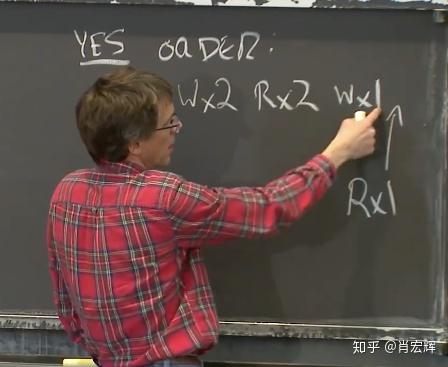 YES ORDER:
Wx2 Rx2 Wx1
Rx1
知乎 @肖宏辉